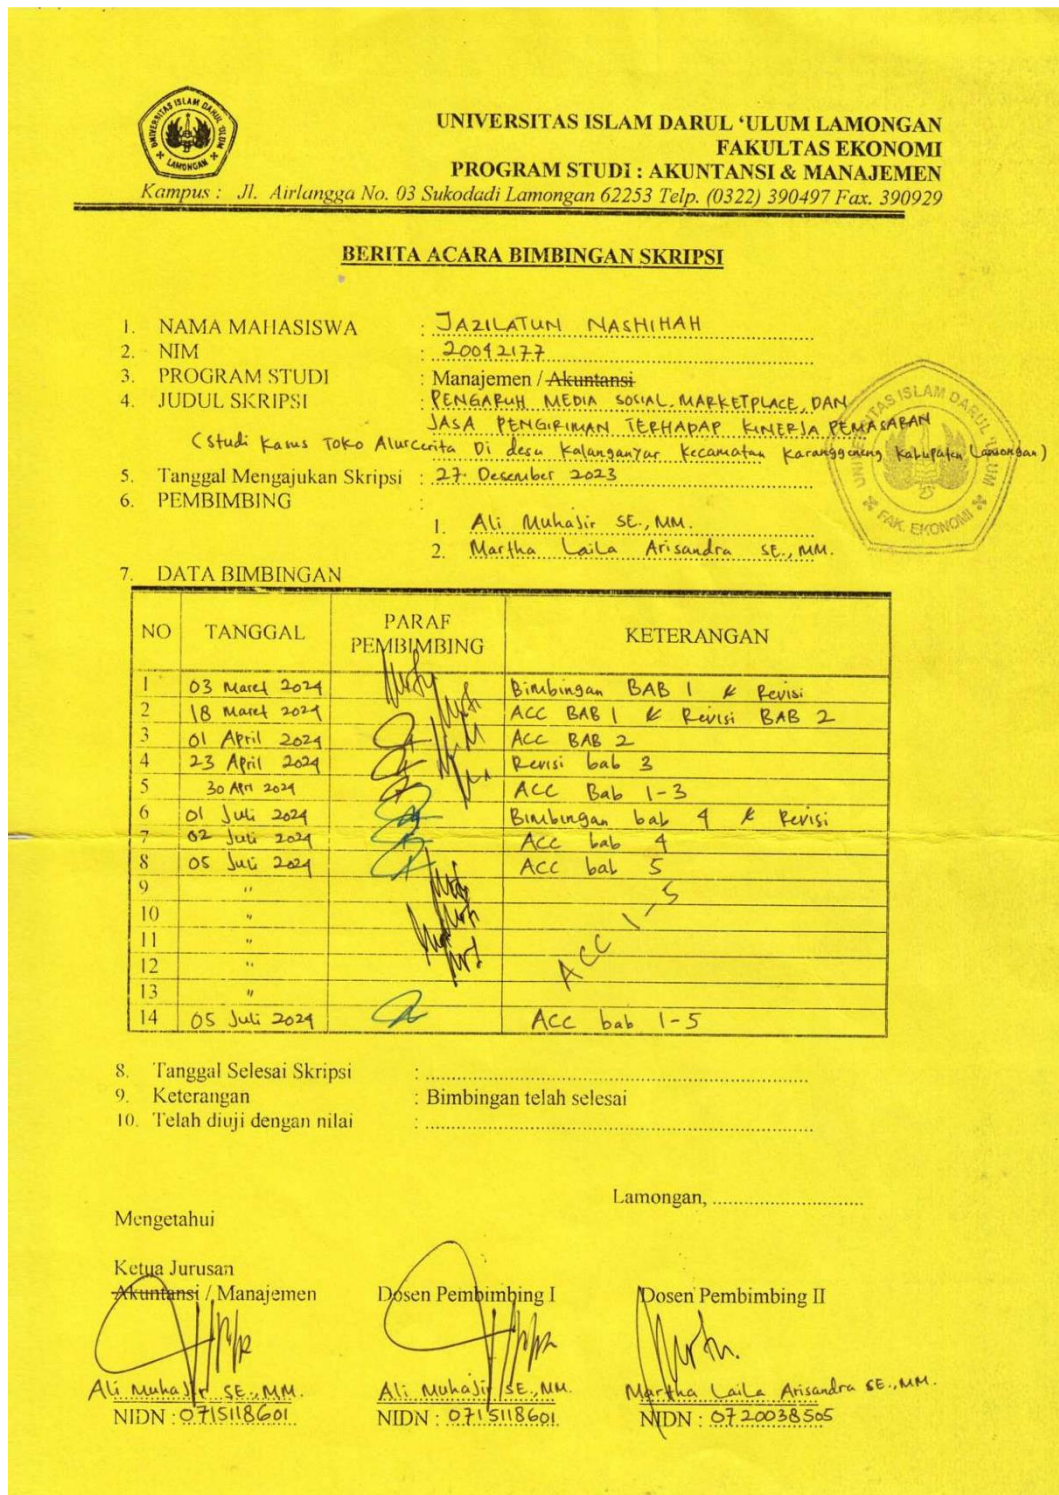 UNIVERSITAS ISLAM DARUL 'ULUM
LAMONGAN
UNIVERSITAS ISLAM DARUL 'ULUM LAMONGAN
FAKULTAS EKONOMI
PROGRAM STUDI : AKUNTANSI & MANAJEMEN
Kampus : Jl. Airlangga No. 03 Sukodadi Lamongan 62253 Telp. (0322) 390497 Fax. 390929
BERITA ACARA BIMBINGAN SKRIPSI
1. NAMA MAHASISWA : JAZILATUN NASHIHAH
2. NIM : 20042177
3. PROGRAM STUDI : Manajemen / Akuntansi
4. JUDUL SKRIPSI : PENGARUH MEDIA SOCIAL, MARKETPLACE, DAN
JASA PENGIRIMAN TERHADAP KINERJA PEMASARAN
(Studi Kasus Toko Alurcerita Di desa Kalanganyar Kecamatan Karanggeneng Kabupaten Lamongan)
5. Tanggal Mengajukan Skripsi : 27 Desember 2023
6. PEMBIMBING :
1. Ali Muhajir SE., MM.
2. Martha Laila Arisandra SE., MM.
UNIVERSITAS ISLAM DARUL 'ULUM
FAK. EKONOMI
7. DATA BIMBINGAN
NO TANGGAL PARAF PEMBIMBING KETERANGAN
1 03 Maret 2024 Bimbingan BAB 1 & Revisi
2 18 Maret 2024 ACC BAB 1 & Revisi BAB 2
3 01 April 2024 ACC BAB 2
4 23 April 2024 Revisi bab 3
5 30 Aprl 2024 ACC Bab 1-3
6 01 Juli 2024 Bimbingan bab 4 & Revisi
7 02 Juli 2024 ACC bab 4
8 05 Juli 2024 ACC bab 5
9 "
10 "
11 "
12 "
13 "
ACC 1-5
14 05 Juli 2024 ACC bab 1-5
8. Tanggal Selesai Skripsi :
9. Keterangan : Bimbingan telah selesai
10. Telah diuji dengan nilai :
Lamongan,
Mengetahui
Ketua Jurusan
Akuntansi / Manajemen Dosen Pembimbing I Dosen Pembimbing II
Ali Muhajir SE., MM. Ali Muhajir SE., MM. Martha Laila Arisandra SE., MM.
NIDN : 0715118601 NIDN : 0715118601 NIDN : 0720038505